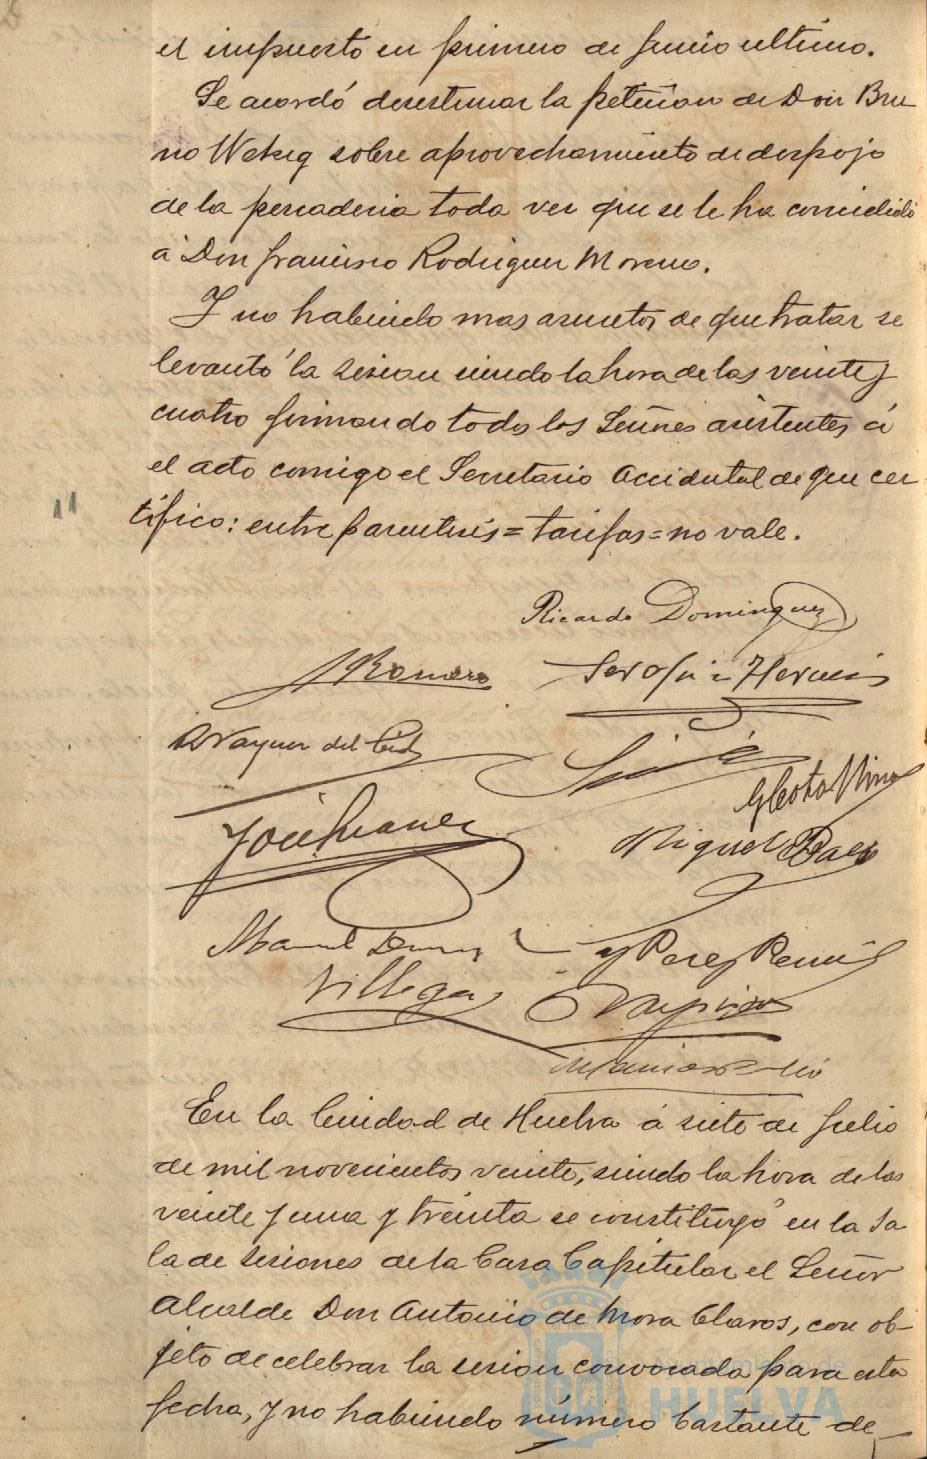 el impuesto en primero de Junio ultimo.
Se acordó desestimar la petición de Don Bru
no Wetzig sobre aprovechamiento de despojo
de la pescaderia toda vez que se le ha concedido
á Don Francisco Rodriguez Moreno.
Y no habiendo mas asuntos de que tratar se
levantó la sesion siendo la hora de las veinte y
cuatro firmando todos los Señores asistentes á
el acto conmigo el Secretario Accidental de que cer
tifico: entre parentesis = tarifas = no vale.
Ricardo Dominguez
J Romero
Serafin
R Vazquez del Cid
José Juanes
Miguel Baez
Manuel
y Perez
Villegas
En la Ciudad de Huelva á siete de Julio
de mil novecientos veinte, siendo la hora de las
veinte y una y treinta se constituyó en la Sa
la de Sesiones de la Casa Capitular el Señor
Alcalde Don Antonio de Mora Claros, con ob-
jeto de celebrar la sesion convocada para esta
Ayuntamiento de
fecha, y no habiendo número bastante de
HUELVA